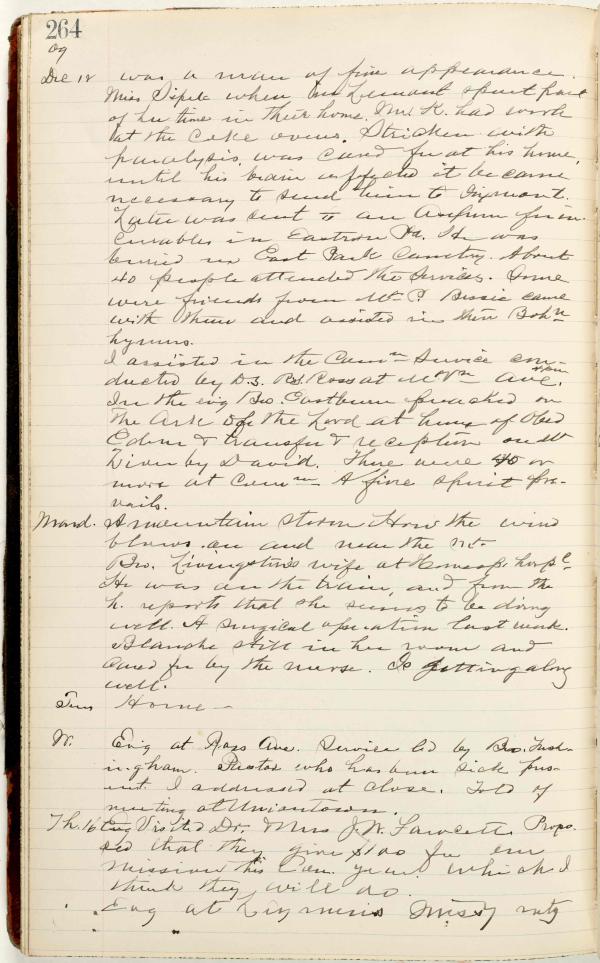 264
09
Dec 12 was a man of fine appearance.
Miss Sipek when in Lemont spent part
of her time in their home. Mr. K. had work
at the Coke ovens. Stricken with
paralysis, was cared for at his home,
until his brain affected it became
necessary to send him to Dixmont.
Later was sent to an Asylum for in-
curables in Eastern Pa. He was
buried in East Park Cemetry. About
40 people attended the services. Some
were friends from Mt. P. Bessie came
with them and assisted in their Bohn
hymns.
I assisted in the Comn Service con-
ducted by D.S. Ross at Mt Vn Ave.
In the evig Bro. Eastburn preached on
The Ark of the Lord at house of Obed
Edom & transfer & reception on Mt
Zion by David. There were 40 or
more at Comn A fine spirit pre-
vails.
Mond. A mountain storm How the wind
blows on and near the mt-
Bro. Livingston's wife at hospl-
He was on the train, and from the
h. reports that she seems to be doing
well. A surgical operation last week.
Blanche still in her room and
cared for by the nurse. Is getting along
well.
Tues Home-
W. Evig at Ross Ave. Service led by Bro.
ingham. Pastor who has been sick pres-
ent. I addressed at close. Told of
meeting at Uniontown.
Th. 16 Evg Visited Dr. & Mrs J.W. Fawcett. Propo-
sed that they give $100 for our
mission this Con. year. which I
think they will do.
Evg at Missy mtg